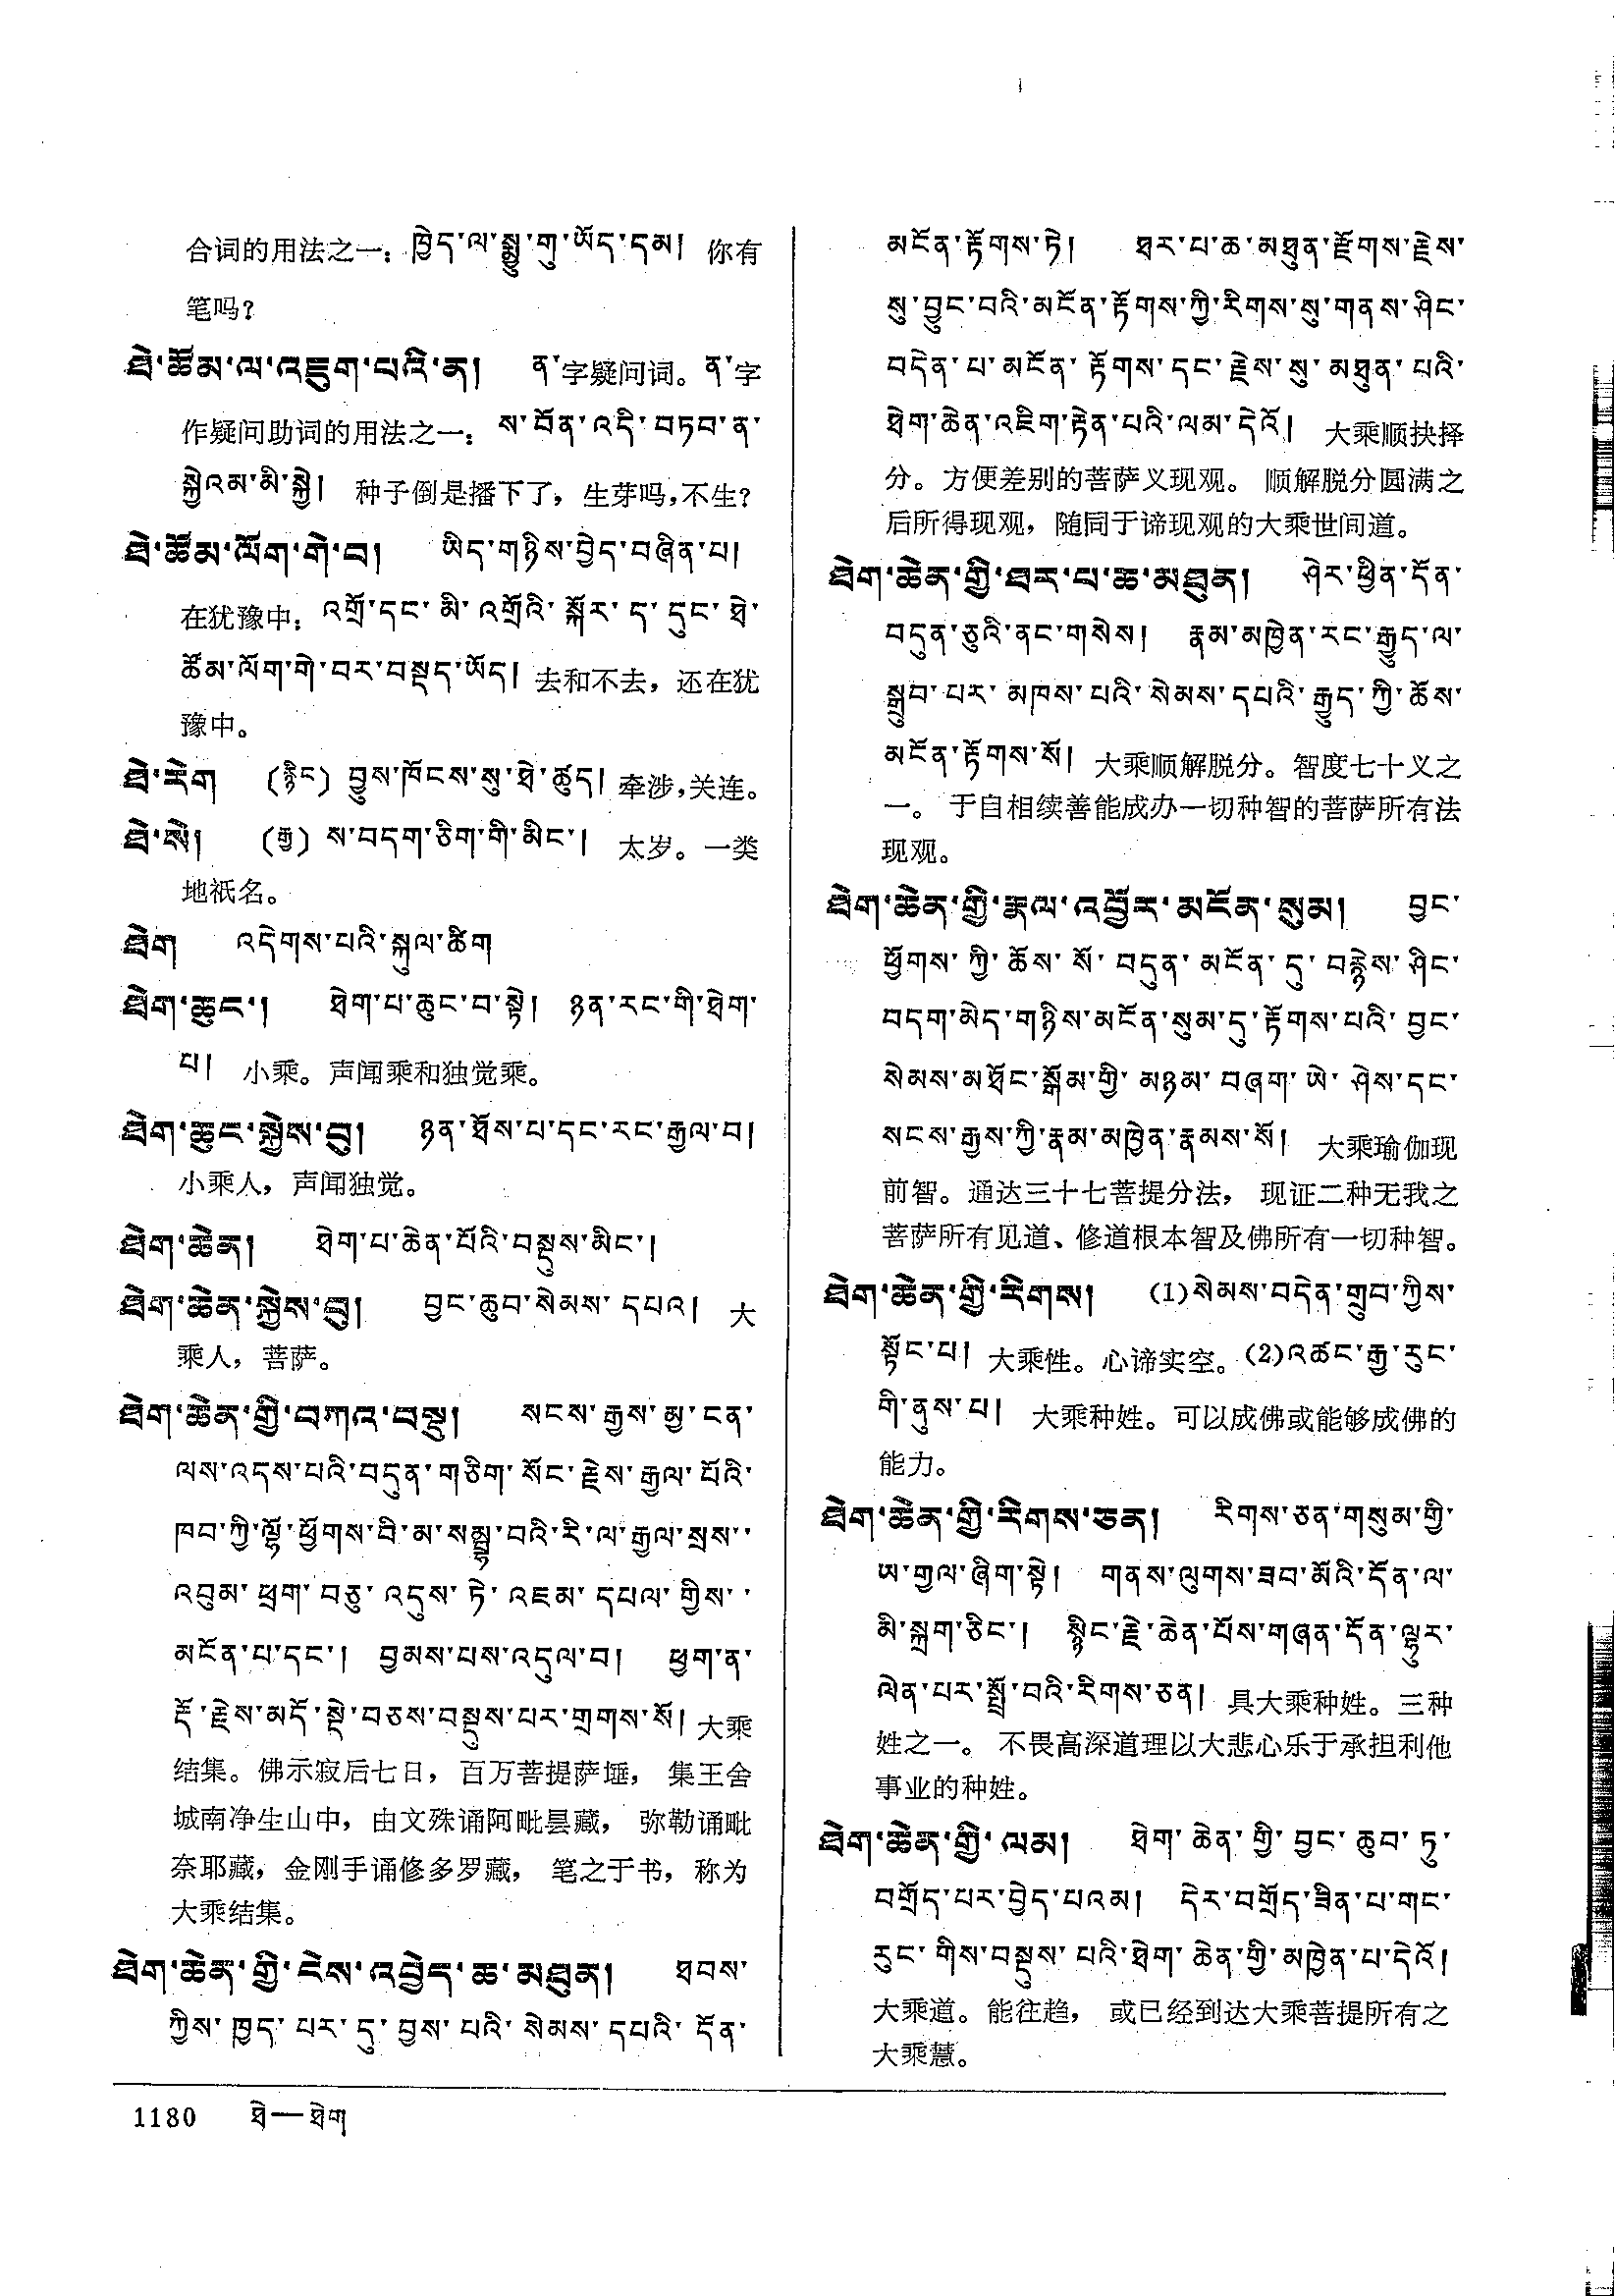 合词的用法之一：ཁྱེད་ལ་སྨྱུ་གུ་ཡོད་དམ། 你有
笔吗？
ཐེ་ཚོམ་ལ་འཇུག་པའི་ན། ན་字疑问词。ན་字
作疑问助词的用法之一：ས་བོན་འདི་བཏབ་ན་
སྐྱེའམ་མི་སྐྱེ། 种子倒是播下了，生芽吗，不生？
ཐེ་ཚོམ་ལོག་གེ་བ། ཡིད་གཉིས་བྱེད་བཞིན་པ།
在犹豫中：འགྲོ་དང་མི་འགྲོའི་སྐོར་ད་དུང་ཐེ་
ཚོམ་ལོག་གེ་བར་བསྡད་ཡོད། 去和不去，还在犹
豫中。
ཐེ་རེག (རྙིང) བྱུས་ཁོངས་སུ་ཐེ་ཚུད། 牵涉，关连。
ཐེ་སེ། (རྒྱ) ས་བདག་ཅིག་གི་མིང་། 太岁。一类
地祇名。
ཐེག འདེགས་པའི་སྐུལ་ཚིག
ཐེག་ཆུང་། ཐེག་པ་ཆུང་བ་སྟེ། ཉན་རང་གི་ཐེག་
པ། 小乘。声闻乘和独觉乘。
ཐེག་ཆུང་སྐྱེས་བུ། ཉན་ཐོས་པ་དང་རང་རྒྱལ་བ།
小乘人，声闻独觉。
ཐེག་ཆེན། ཐེག་པ་ཆེན་པོའི་བསྡུས་མིང་།
ཐེག་ཆེན་སྐྱེས་བུ། བྱང་ཆུབ་སེམས་དཔའ། 大
乘人，菩萨。
ཐེག་ཆེན་གྱི་བཀའ་བསྡུ། སངས་རྒྱས་མྱ་ངན་
ལས་འདས་པའི་བདུན་གཅིག་སོང་རྗེས་རྒྱལ་པོའི་
ཁབ་ཀྱི་ལྷོ་ཕྱོགས་བི་མ་སམྦྷ་བའི་རི་ལ་རྒྱལ་སྲས་་
འབུམ་ཕྲག་བཅུ་འདུས་ཏེ་འཇམ་དཔལ་གྱིས་་
མངོན་པ་དང་། བྱམས་པས་འདུལ་བ། ཕྱག་ན་
རྡོ་རྗེས་མདོ་སྡེ་བཅས་བསྡུས་པར་གྲགས་སོ། 大乘
结集。佛示寂后七日，百万菩提萨埵，集王舍
城南净生山中，由文殊诵阿毗昙藏，弥勒诵毗
奈耶藏，金刚手诵修多罗藏，笔之于书，称为
大乘结集。
ཐེག་ཆེན་གྱི་ངེས་འབྱེད་ཆ་མཐུན། ཐབས་
ཀྱིས་ཁྱད་པར་དུ་བྱས་པའི་སེམས་དཔའི་དོན་
མངོན་རྟོགས་ཏེ། ཐར་པ་ཆ་མཐུན་རྫོགས་རྗེས་
སུ་བྱུང་བའི་མངོན་རྟོགས་ཀྱི་རིགས་སུ་གནས་ཤིང་
བདེན་པ་མངོན་རྟོགས་དང་རྗེས་སུ་མཐུན་པའི་
ཐེག་ཆེན་འཇིག་རྟེན་པའི་ལམ་དེའོ། 大乘顺抉择
分。方便差别的菩萨义现观。顺解脱分圆满之
后所得现观，随同于谛现观的大乘世间道。
ཐེག་ཆེན་གྱི་ཐར་པ་ཆ་མཐུན། ཤེར་ཕྱིན་དོན་
བདུན་ཅུའི་ནང་གསེས། རྣམ་མཁྱེན་རང་རྒྱུད་ལ་
སྒྲུབ་པར་མཁས་པའི་སེམས་དཔའི་རྒྱུད་ཀྱི་ཆོས་
མངོན་རྟོགས་སོ། 大乘顺解脱分。智度七十义之
一。于自相续善能成办一切种智的菩萨所有法
现观。
ཐེག་ཆེན་གྱི་རྣལ་འབྱོར་མངོན་སུམ། བྱང་
ཕྱོགས་ཀྱི་ཆོས་སོ་བདུན་མངོན་དུ་བརྙེས་ཤིང་
བདག་མེད་གཉིས་མངོན་སུམ་དུ་རྟོགས་པའི་བྱང་
སེམས་མཐོང་སྒོམ་གྱི་མཉམ་བཞག་ཡེ་ཤེས་དང་
སངས་རྒྱས་ཀྱི་རྣམ་མཁྱེན་རྣམས་སོ། 大乘瑜伽现
前智。通达三十七菩提分法，现证二种无我之
菩萨所有见道、修道根本智及佛所有一切种智。
ཐེག་ཆེན་གྱི་རིགས། (1)སེམས་བདེན་གྲུབ་ཀྱིས་
སྟོང་པ། 大乘性。心谛实空。(2)འཚང་རྒྱ་རུང་
གི་ནུས་པ། 大乘种姓。可以成佛或能够成佛的
能力。
ཐེག་ཆེན་གྱི་རིགས་ཅན། རིགས་ཅན་གསུམ་གྱི་
ཡ་གྱལ་ཞིག་སྟེ། གནས་ལུགས་ཟབ་མོའི་དོན་ལ་
མི་སྐྲག་ཅིང་། སྙིང་རྗེ་ཆེན་པོས་གཞན་དོན་ལྷུར་
ལེན་པར་སྤྲོ་བའི་རིགས་ཅན། 具大乘种姓。三种
姓之一。不畏高深道理以大悲心乐于承担利他
事业的种姓。
ཐེག་ཆེན་གྱི་ལམ། ཐེག་ཆེན་གྱི་བྱང་ཆུབ་ཏུ་
བགྲོད་པར་བྱེད་པའམ། དེར་བགྲོད་ཟིན་པ་གང་
རུང་གིས་བསྡུས་པའི་ཐེག་ཆེན་གྱི་མཁྱེན་པ་དེའོ།
大乘道。能往趋，或已经到达大乘菩提所有之
大乘慧。
1180 ཐེ—ཐེག